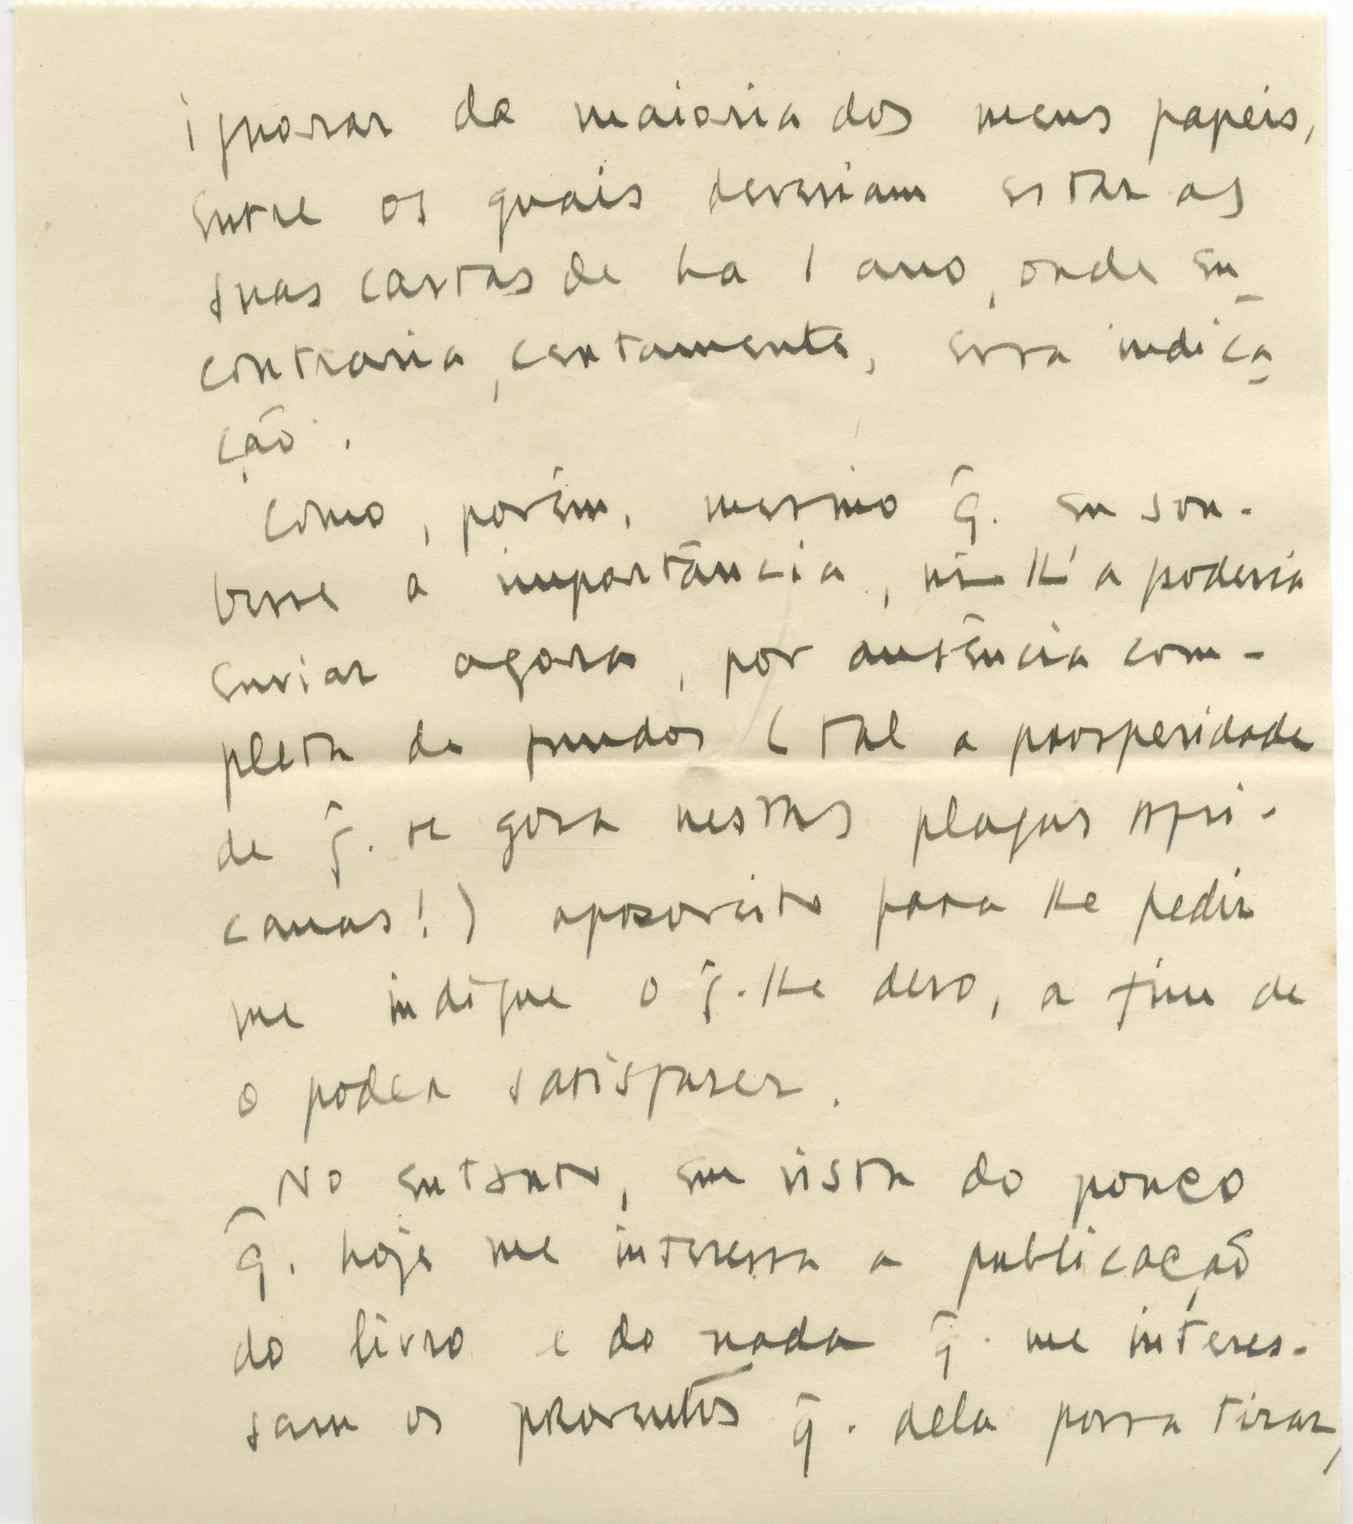 ignorar da maioria dos meus papéis,
entre os quais deveriam estar as
suas cartas de ha 1 ano, onde en-
contraria, certamente, essa indica-
ção.
Como, porém, mesmo q̃. eu sou-
besse a importância, não lh'a poderia
enviar agora, por ausência com-
pleta de fundos (tal a prosperidade
de q̃. se gosa nestas plagas afri-
canas!) aproveito para lhe pedir
me indique o q̃. lhe devo, a fim de
o poder satisfazer.
No entanto, em vista do pouco
q̃. hoje me interessa a publicação
do livro e do nada q̃. me interes-
sam os proventos q̃. dela possa tirar,